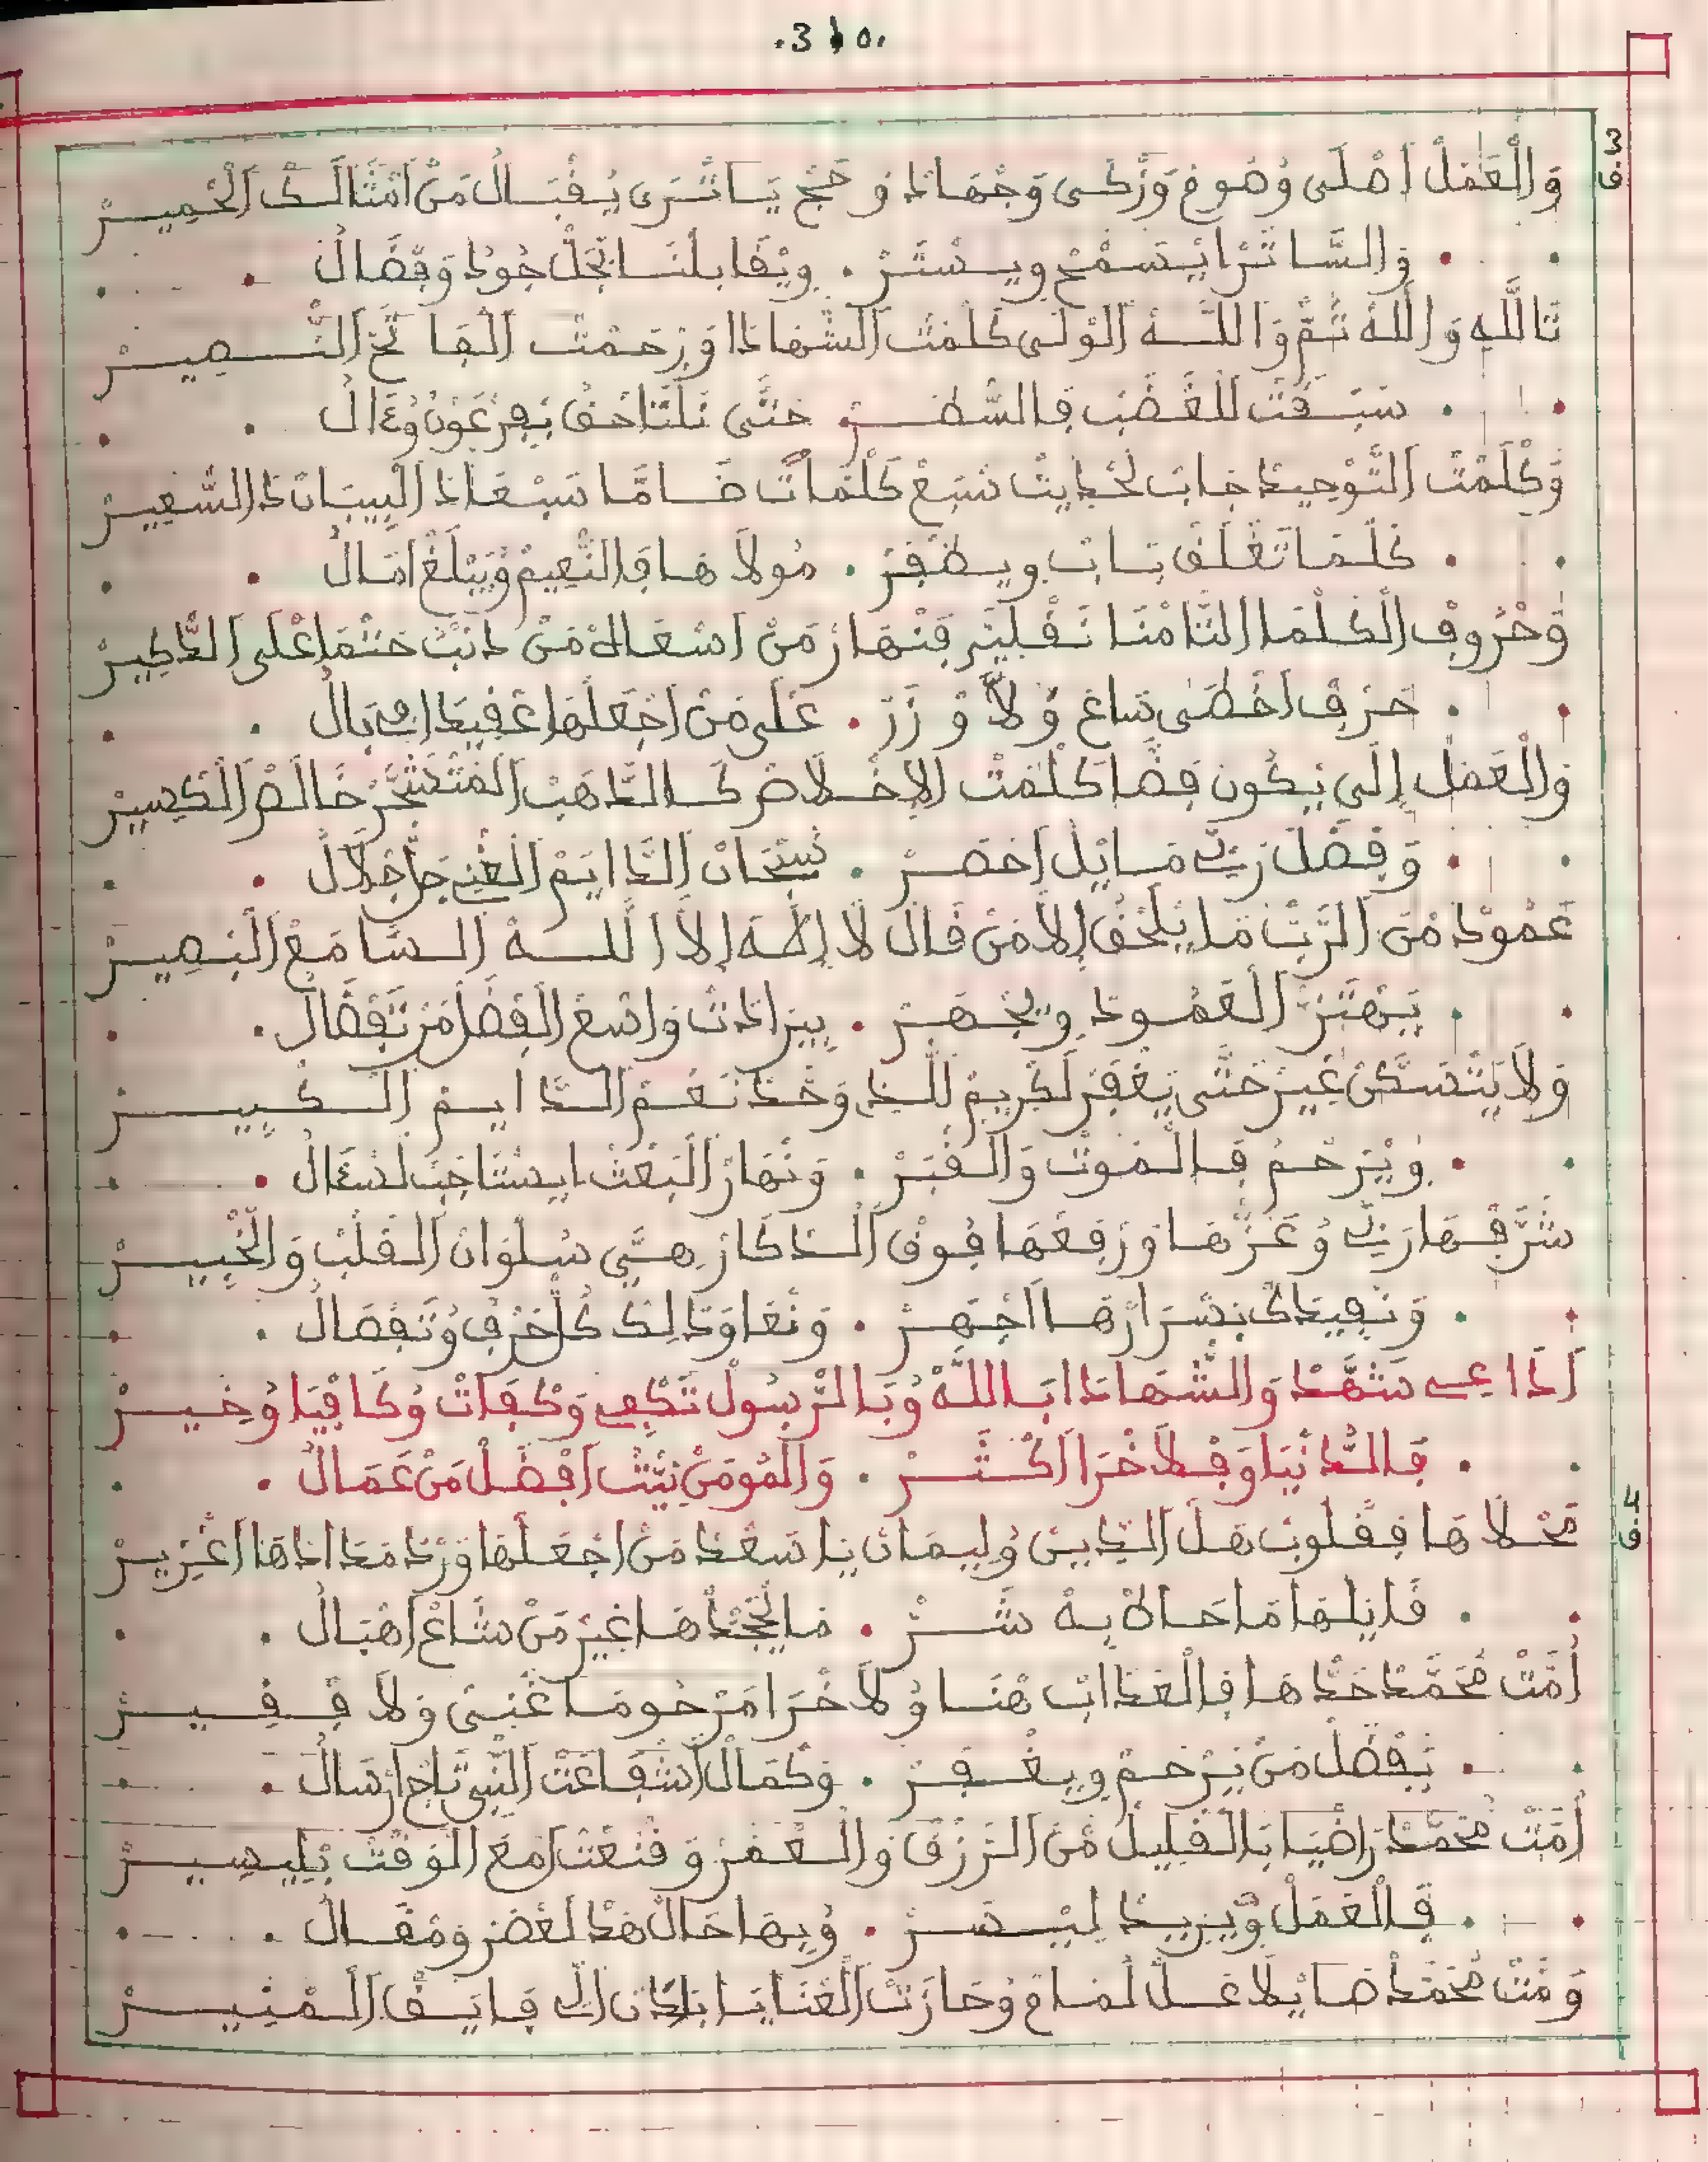 .3 10.
ف3
وَالْعَمَلْ اَصْلَى وُضُوءْ وَزَّكَى وَجْهَادْ وَحَجْ يَا تْرَى يُقْبَالْ مَنْ اَمْثَالَكْ اَلْحْمِيرْ
وَالسَّاتَرْ اَيَسْمَحْ وِيسْتَرْ . وِيْقَابلْنَا بْحَلْ جُودْ وَفْضَالْ
تَاللَّهِ وَاللَّهْ ثُمَّ وَاللَّهْ اَلْوْلَى كَلْمَتْ اَلشَّهَادَا وَرَحْمَتْ اَلْفَاتَحْ اَلنَّصِيرْ
سَبْقَتْ لَلْغَضَبْ فَالسَّطَرْ حَتَّى نَلْتَاحَقْ بَفِرْعَوْنْ وُءَالْ
وَكْلَمْتْ اَلتَّوْحِيدْ جَابْ لَحْدِيثْ سَبَعْ كَلْمَاتْ ضَامَّا سَبْعَادْ اَلْبِيبَانْ دَالسَّعِيرْ
كَلْمَا تَغْلَقْ بَابْ وِيظْفَرْ . مُولَاهَا فَالنَّعِيمْ وُيَبْلَغْ اَمَالْ
وُحْرُوفْ اَلْكَلْمَا اَلثَّامْنَا تَقْلِيبَرْ فَنْهَارْ مَنْ اَسْعَادْ مَنْ دَنْبْ حَتْمَا عْلَى اَلدَّكِيرْ
حَرْفْ اَخْطَى سَاعَ وُلَا وْزَرْ . عَلَى مَنْ اَجْعَلْهَا عْقِيدَا فِي بَالْ
وَالْعَمَلْ إِلَي يَكُونْ فَضَّا كَلْمَتْ اَلِاخْلَاصْ كَالدَّهَبْ اَلْمَتْشَجَّرْ خَالَصْ اَلْكْسِيرْ
وَفِضَلْ رَبِّي مَايْلْ اَحْصَرْ . سُبْحَانْ اَلدَّايَمْ اَلْغْنِي جَلْ جْلَالْ
عَمُودْ مَنْ اَلرَّبْ مَا يَلْحَقْ إِلَّا مَنْ قَالْ لَا إِلَهَ إِلَّا اَللَّهْ اَلسَّامَعْ اَلْبَصِيرْ
يَهْتَزْ اَلْعَمُودْ وِيجْهَرْ . بِيرَادَتْ وَاسَعْ اَلْفَضْلْ مَنْ تَفْضَالْ
وَلَا يَتْسَكَّنْ غِيرْ حَتَّى يَغْفَرْ لَكْرِيمْ لَلِّي وَحَّدْ نَعْمْ اَلدَّايَمْ اَلْكْبِيرْ
وِيْرَحْمُ فَالْمُوتْ وَالْقْبَرْ . وَنْهَارْ اَلْبَعْثْ ايسْتَاجَبْ لَسْءَالْ
شَرَّفْهَا رَبِّي وُعَزْهَا وْرَفِعْهَا فُوقْ اَلدْكَارْ هِيَّ سُلْوَانْ اَلْقَلْبْ وَالْخْبِيرْ
وَنْفِيدَكْ بَسْرَارْهَا اَجْهَرْ . وَنْعَاوَدْ لِكْ كُلْ حَرْفْ وُتَفْصَالْ
اَدَا عِي شَهَّدْ وَالشَّهَادَا بَاللَّهْ وُبَالرَّسُولْ تَكْفِي وَكْفَاتْ وُكَافْيَا وُخِيرْ
فَالدَّنْيَا وَفْلَاخْرَا اَكْثَرْ . وَالْمُومَنْ نِيَّتُ اَفْضَلْ مَنْ عَمَالْ
ف4
مَحْلَاهَا فِقْلُوبْ هَلْ اَلدِّينْ وُلِيمَانْ يَا سَعْدْ مَنْ اَجْعَلْهَا وَرْدْ مَدَادَهَا اَغْزِيرْ
قَايَلْهَا مَا حَادْ بِهْ شَرْ . مَا يَجْحَدْهَا غِيرْ مَنْ شَاعْ اَهْبَالْ
اُمَّتْ مُحَمَّدْ حَدْهَا فَالْعَدَابْ هْنَا وُلَاخْرَا مَرْحُومَا غْنِي وَلَا فْقِيرْ
بَفْضَلْ مَنْ يَرْحَمْ وِيغْفَرْ . وَكْمَالْ اَشْفَاعَتْ اَلنَّبِي تَاجْ اَرْسَالْ
اُمَّتْ مُحَمَّدْ رَاضْيَا بَالْقَلِيلْ مَنْ اَلرَّزْقْ وَالْعْمَرْ وَقْنْعَتْ اَمْعَ اَلْوَقْتْ بَلِيسِيرْ
فَالْعْمَلْ وُيَرِيدْ لِيسَرْ . وُبِهَا حَالْ هَدْ لَعْصَرْ وَمْقَالْ
وَمَّتْ مُحَمَّدْ ضَايْلَا عَلَّ لُمَامْ وُحَازَتْ اَلْعْنَايَا بَالِّي فَايَقْ اَلْمْنِيرْ